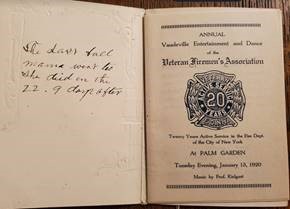 The Last ball
mama went to
She died on the
22. 9 days after
ANNUAL
Vaudeville Entertainment and Dance
of the
Veteran Firemen's Association
20
YEARS
Twenty Years Active Service in the Fire Dept.
of the City of New York
At PALM GARDEN
Tuesday Evening, January 13, 1920
Music by Prof. Kidgast